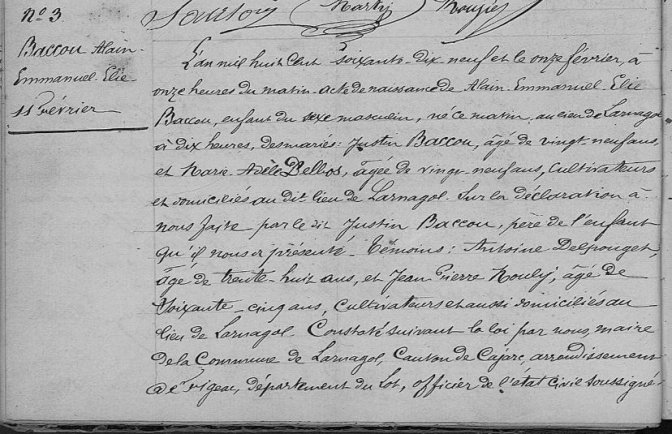 No 3
Baccou Alain
Emmanuel Elie
11 Février
L'an mil huit cent soixante-dix neuf et le onze février, à
onze heures du matin acte de naissance de Alain Emmanuel Elie
Baccou, enfant du sexe masculin, né ce matin, au lieu de Larnagol
à dix heures, des mariés: Justin Baccou, âgé de vingt-neuf ans,
et Marie-Adèle Bellos, âgée de vingt-neuf ans, Cultivateurs
et domiciliés au dit lieu de Larnagol. Sur la déclaration à
nous faite par le dit Justin Baccou, père de l'enfant
qu'il nous a présenté. Témoins: Antoine Delpouget,
âgé de trente-huit ans, et Jean Pierre Rouly, âgé de
Soixante-cinq ans, Cultivateurs et aussi domiciliés au
lieu de Larnagol. Constaté suivant la loi par nous, maire
de la Commune de Larnagol, Canton de Cajarc, arrondissement
de Figeac, département du Lot, officier de l'état civil soussigné